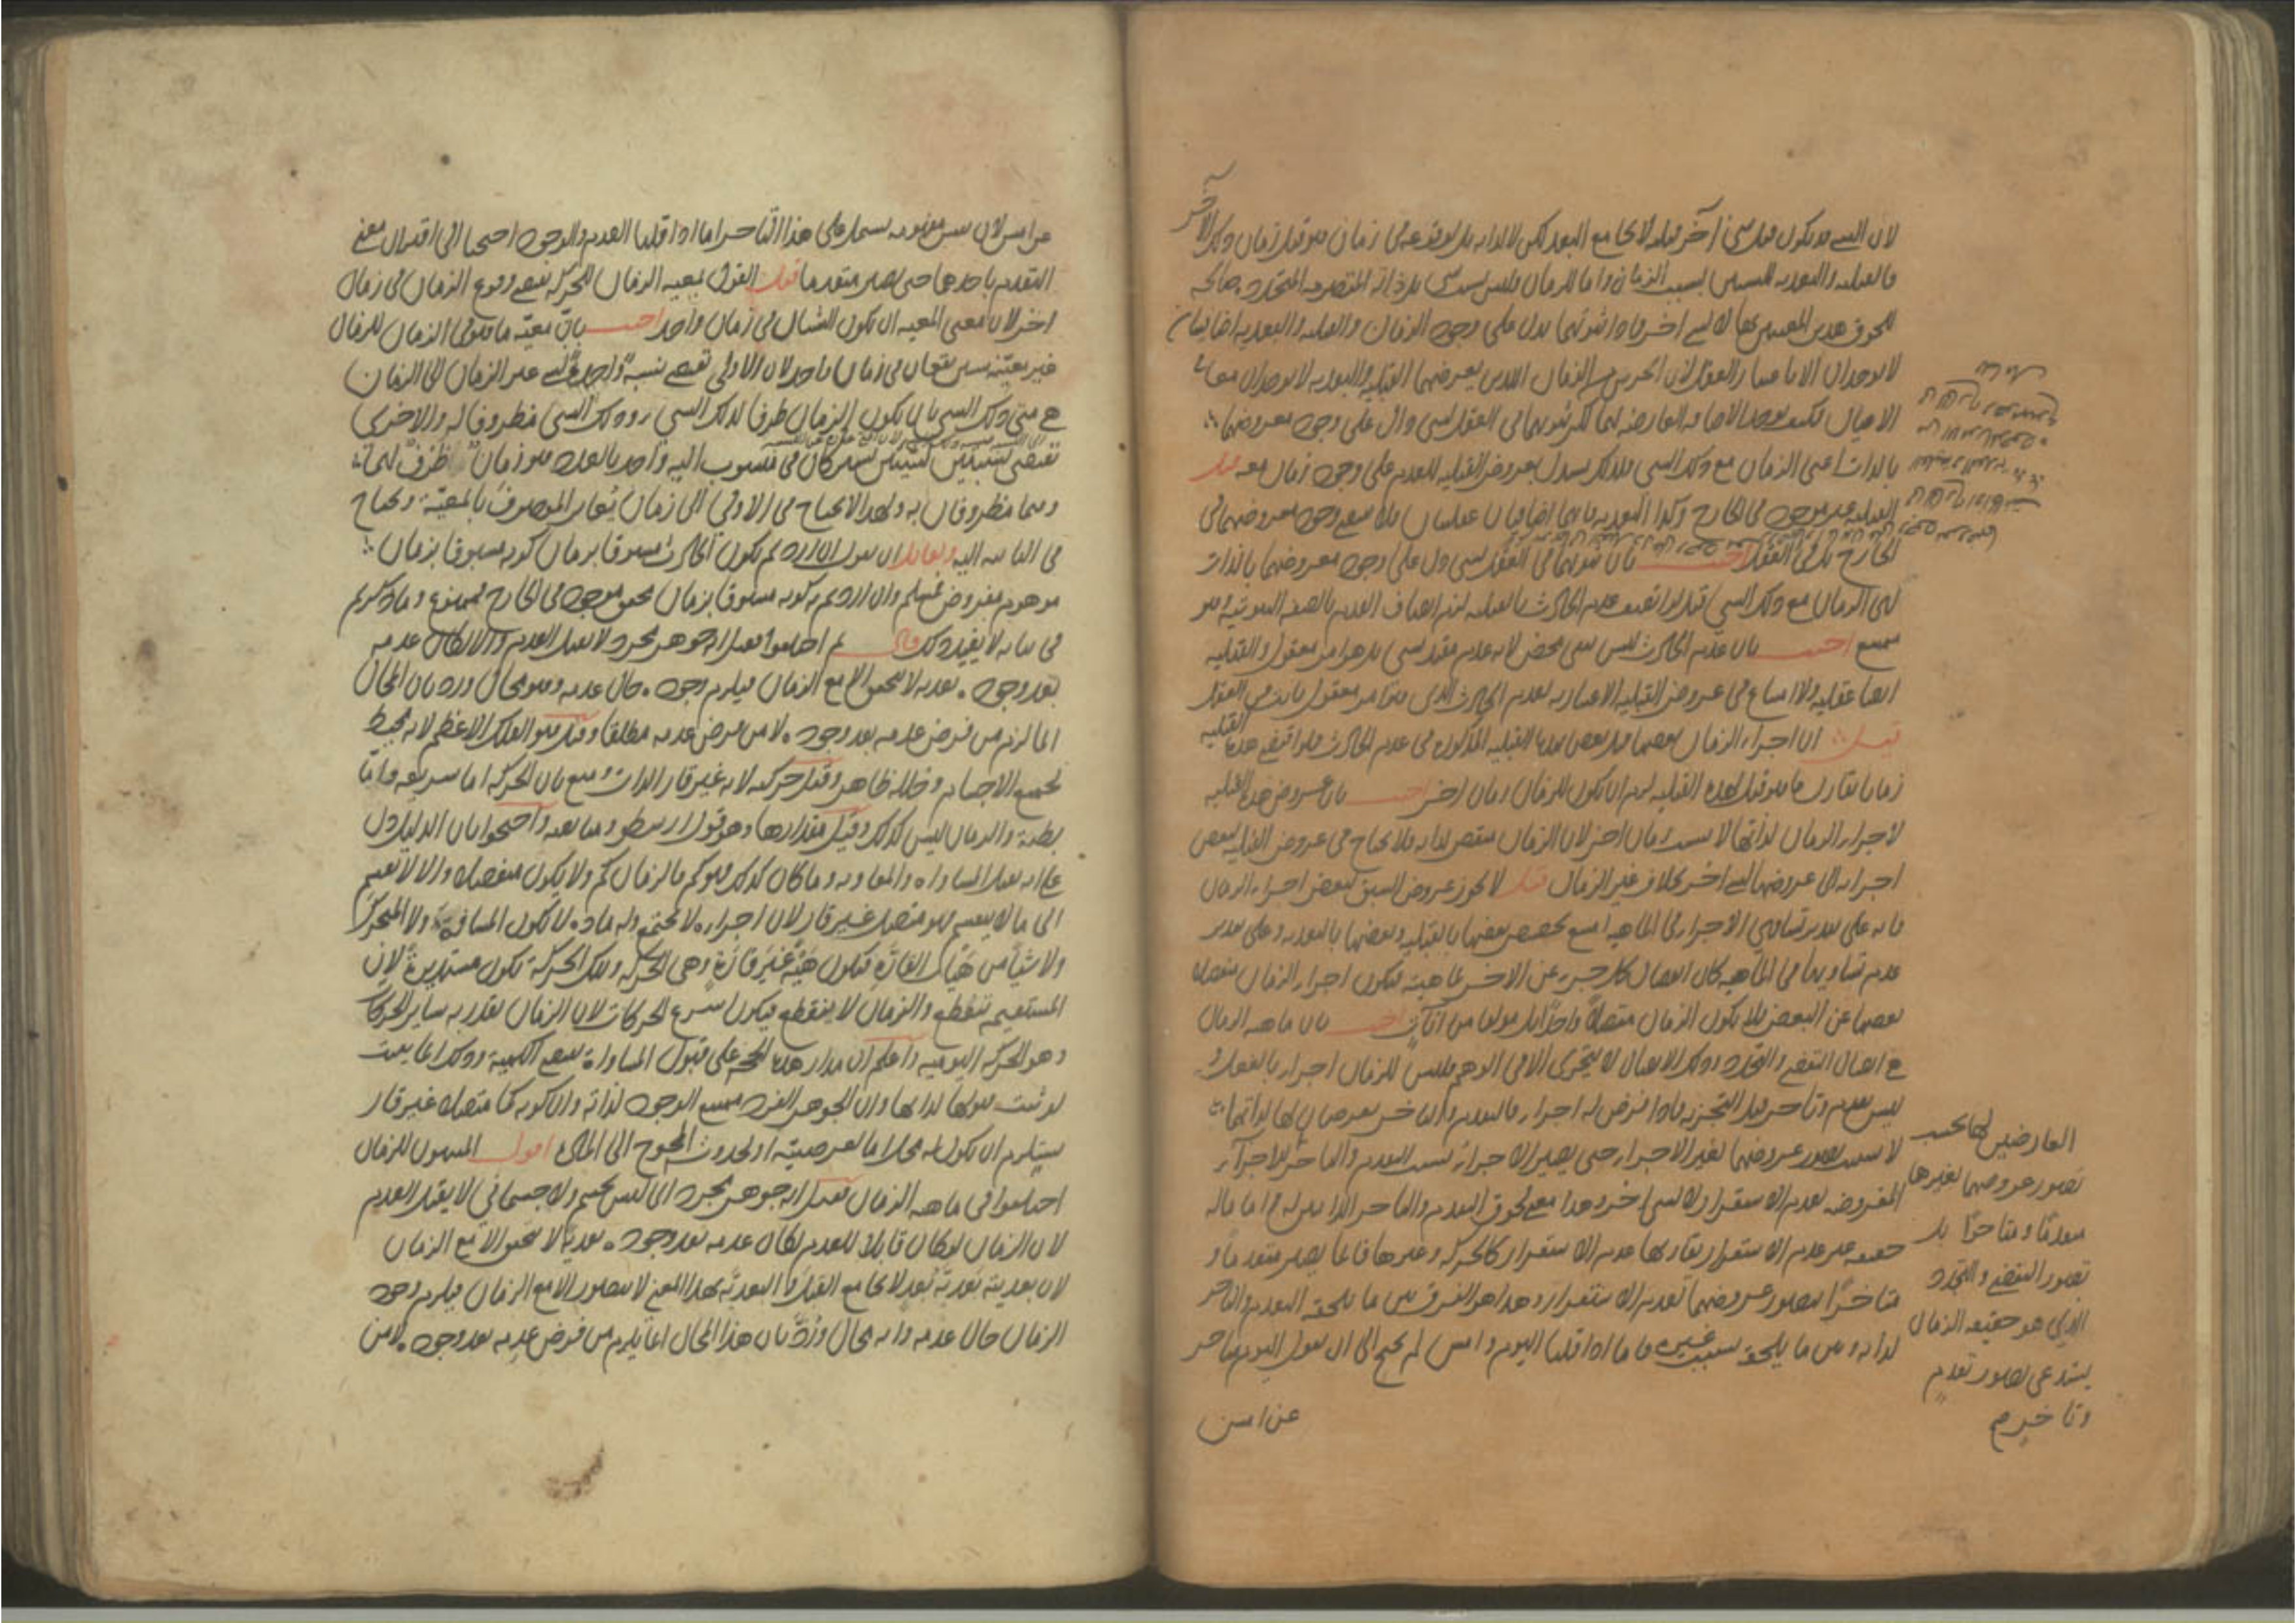 لان الشيء قد يكون قبل شيء آخر قبلية لا يجامع البعد لكن لا لذاته بل لوقوعه في زمان هو قبل زمان ذلك الآخر
فالقبلية والبعدية للشيئين بسبب الزمان واما للزمان فليس بسبب شيء بل ذاته المتصرمة المتجددة صالحة
للحوق هذين المعنيين بها لا لشيء آخر فاذا ثبوتهما يدل على وجود الزمان والقبلية والبعدية اضافيتان
لا توجدان الا في العقل لان الجزئين من الزمان اللذين يعرضهما القبلية والبعدية لا يوجدان معا
فكيف توجد الاضافة العارضة لهما لكن ثبوتهما في العقل لشيء دال على وجود معروضهما
بالذات اعني الزمان مع ذلك الشيء فلذلك يستدل بعروض القبلية للعدم على وجود زمان معه قيل
القبلية غير موجودة في الخارج وكذا البعدية فانهما اضافيتان عقليتان فلا يقتضي وجود معروضهما في
الخارج بل في العقل اجيب بان ثبوتهما في العقل لشيء دل على وجود معروضهما بالذات
اعني الزمان مع ذلك الشيء قيل لو اتصف عدم الحادث بالقبلية لزم اتصاف العدم بالصفة الثبوتية وهو
ممتنع اجيب بان عدم الحادث ليس نفي محض لانه عدم مقيد بشيء بل هو امر معقول والقبلية
ايضا عقلية ولا امتناع في عروض القبلية الاعتبارية لعدم الحادث الذي هو امر معقول ثابت في العقل
قيل ان اجزاء الزمان بعضها قبل بعض بهذه القبلية المذكورة في عدم الحادث فلو اقتضى هذه القبلية
زمانا يقارن ما هو قبل لهذه القبلية لزم ان يكون للزمان زمان آخر اجيب بان عروض هذه القبلية
لاجزاء الزمان لذاتها لا بسبب زمان آخر لان الزمان متقض لذاته فلا يحتاج في عروض القبلية لبعض
اجزائه الى عروضها لشيء آخر بخلاف غير الزمان قيل لا يجوز عروض السبق لبعض اجزاء الزمان
فانه على تقدير تساوي الاجزاء في الماهية امتنع تخصيص بعضها بالقبلية وبعضها بالبعدية وعلى تقدير
عدم تساويها في الماهية كان انفصال كل جزء عن الآخر بماهيته فيكون اجزاء الزمان منفصلة
بعضها عن البعض فلا يكون الزمان متصلا واحدا بل مولفا من آنات اجيب بان ماهية الزمان
هي اتصال التقضي والتجدد وذلك الاتصال لا يتجزى الا في الوهم فليس للزمان اجزاء بالفعل و
ليس تقدم وتاخر قبل التجزية فاذا فرض له اجزاء فالتقدم والتاخر يعرضان لها لذاتها
لا بسبب تصور عروضهما لغير الاجزاء حتى يصير الاجزاء بسبب التقدم والتاخر للاجزاء
المفروضة لعدم الاستقرار لا لشيء آخر وهذا معنى لحوق التقدم والتاخر الذاتيين له واما ما له
حقيقة غير عدم الاستقرار يقارنها عدم الاستقرار كالحركة وغيرها فانما يصير متقدما و
متاخرا بتصور عروضهما لعدم الاستقرار وهذا هو الفرق بين ما يلحقه التقدم والتاخر
لذاته وبين ما يلحقه بسبب غيره فاما اذا قلنا اليوم وامس لم نحتج الى ان نقول اليوم متاخر
عن امس
العارضين لها بحسب
تصور عروضهما لغيرها
متقدما ومتاخرا بل
تصور التقضي والتجدد
الذي هو حقيقة الزمان
يستدعي تصور تقدم
وتاخر
عن امس لان نفس مفهومه يشتمل على هذا التاخر اما اذا قلنا العدم والوجود احتجنا الى اقتران معنى
التقدم باحدهما حتى يصير متقدما قيل القول بمعية الزمان للحركة يقتضي وقوع الزمان في زمان
آخر لان معنى المعية ان يكون الشيئان في زمان واحد اجيب بان معية ما هو في الزمان للزمان
غير معية شيئين يقعان في زمان واحد لان الاولى تقتضي نسبة واحدة لشيء غير الزمان الى الزمان
هي متى ذلك الشيء بان يكون الزمان ظرفا لذلك الشيء وذلك الشيء مظروفا له والاخرى
تقتضي نسبتين لشيئين يشتركان في منسوب اليه واحد بالعدد هو زمان ظرف لهما
وهما مظروفان به ولهذا لا يحتاج في الاولى الى زمان يغاير الموصوف بالمعية ويحتاج
في الثانية اليه ولقائل ان يقول ان اردتم بكون الحادث مسبوقا بزمان كونه مسبوقا بزمان
موهوم مفروض فمسلم وان اردتم به كونه مسبوقا بزمان محقق موجود في الخارج فممنوع وما ذكرتم
في بيانه لا يفيد ذلك قال ثم اختلفوا فقيل انه جوهر مجرد لا يقبل العدم والا لكان عدمه
بعد وجوده بعدية لا تتحقق الا مع الزمان فيلزم وجوده حال عدمه وهو محال ورد بان المحال
انما لزم من فرض عدمه بعد وجوده لا من فرض عدمه مطلقا وقيل هو الفلك الاعظم لانه محيط
بجميع الاجسام وخلله ظاهر وقيل حركته لانه غير قار الذات ومنع بان الحركة اما سريعة واما
بطيئة والزمان ليس كذلك وقيل مقدارها وهو قول ارسطو ومتابعيه واحتجوا بان الدليل دل
على انه يقبل المساواة والمفاوتة وما كان كذلك فهو كم فالزمان كم ولا يكون منفصلا والا لانقسم
الى ما لا ينقسم فهو متصل غير قار لان اجزاءه لا تجتمع وله مادة لا تكون المسافة ولا المتحرك
ولا شيئا من هيئاته القارة فيكون هيئة غير قارة وهي الحركة وتلك الحركة تكون مستديرة لان
المستقيمة تنقطع والزمان لا ينقطع فيكون اسرع الحركات لان الزمان يقدر به سائر الحركات
وهو الحركة اليومية واعلم ان مدار هذه الحجة على قبول المساواة يقتضي الكمية وذلك انما يثبت
لو ثبت قبولها لذاتها وان الجوهر الفرد ممتنع الوجود لذاته وان كونه كما متصلا غير قار
يستلزم ان يكون له محل اما لعرضيته او لحدوثه المحوج الى المادة اقول المثبتون للزمان
اختلفوا في ماهية الزمان فقيل انه جوهر مجرد اي ليس بجسم ولا جسماني لا يقبل العدم
لان الزمان لو كان قابلا للعدم لكان عدمه بعد وجوده بعدية لا تتحقق الا مع الزمان
لان بعديته بعدية بعد لا يجامع القبل والبعدية بهذا المعنى لا تتصور الا مع الزمان فيلزم وجود
الزمان حال عدمه وانه محال ورد بان هذا المحال انما يلزم من فرض عدمه بعد وجوده لا من